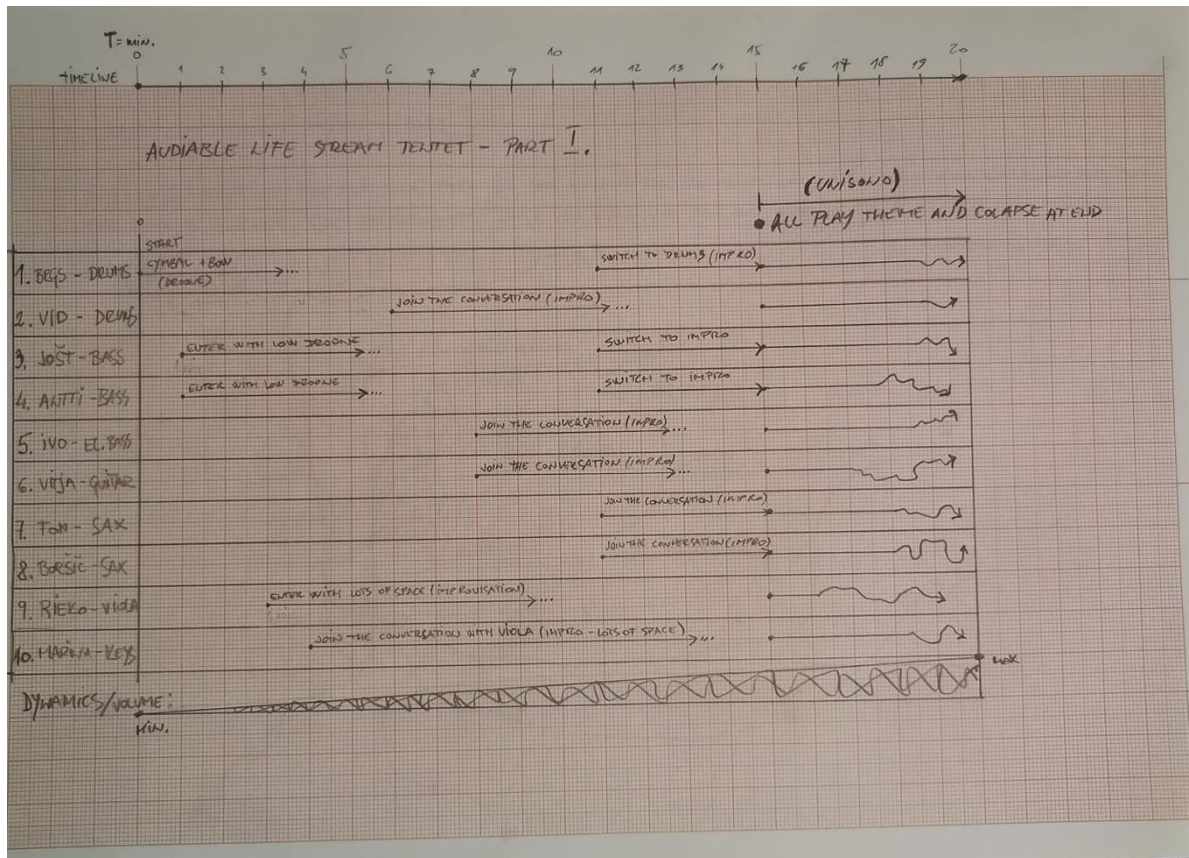 T = min.
0 5 10 15 20
TIMELINE 1 2 3 4 6 7 8 9 11 12 13 14 16 17 18 19
AUDIABLE LIFE STREAM TENTET - PART I.
(UNISONO)
0
ALL PLAY THEME AND COLAPSE AT END
START
1. BRGS - DRUMS CYMBAL + BOW ... SWITCH TO DRUMS (IMPRO)
(DROONE)
2. VID - DRUMS JOIN THE CONVERSATION (IMPRO) ...
3. JOŠT - BASS ENTER WITH LOW DROONE ... SWITCH TO IMPRO
4. ANTTI - BASS ENTER WITH LOW DROONE ... SWITCH TO IMPRO
5. IVO - EL. BASS JOIN THE CONVERSATION (IMPRO) ...
6. VOJA - GUITAR JOIN THE CONVERSATION (IMPRO) ...
7. TON - SAX JOIN THE CONVERSATION (IMPRO)
8. BORŠIČ - SAX JOIN THE CONVERSATION (IMPRO)
9. RIEKO - VIOLA ENTER WITH LOTS OF SPACE (IMPROVISATION) ...
10. MARINA - KEYS JOIN THE CONVERSATION WITH VIOLA (IMPRO - LOTS OF SPACE) ...
MAX
DYNAMICS/VOLUME:
MIN.